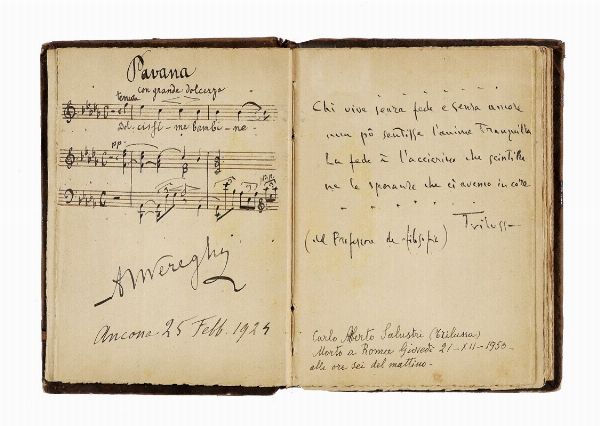 Pavana
con grande dolcezza
tenuta
Dol-cissi-me bambi-ne-
pp
Ancona 25 Febb. 1924
Chi vive senza fede e senza amore
nun pò sentisse l'anima tranquilla
La fede è l'acciarino che scintilla
ne la speranza che ciavemo in core
Trilussa
(Il Professore de filosofia)
Carlo Alberto Salustri (Trilussa)
Morto a Roma Giovedì 21-XII-1950-
alle ore sei del mattino-